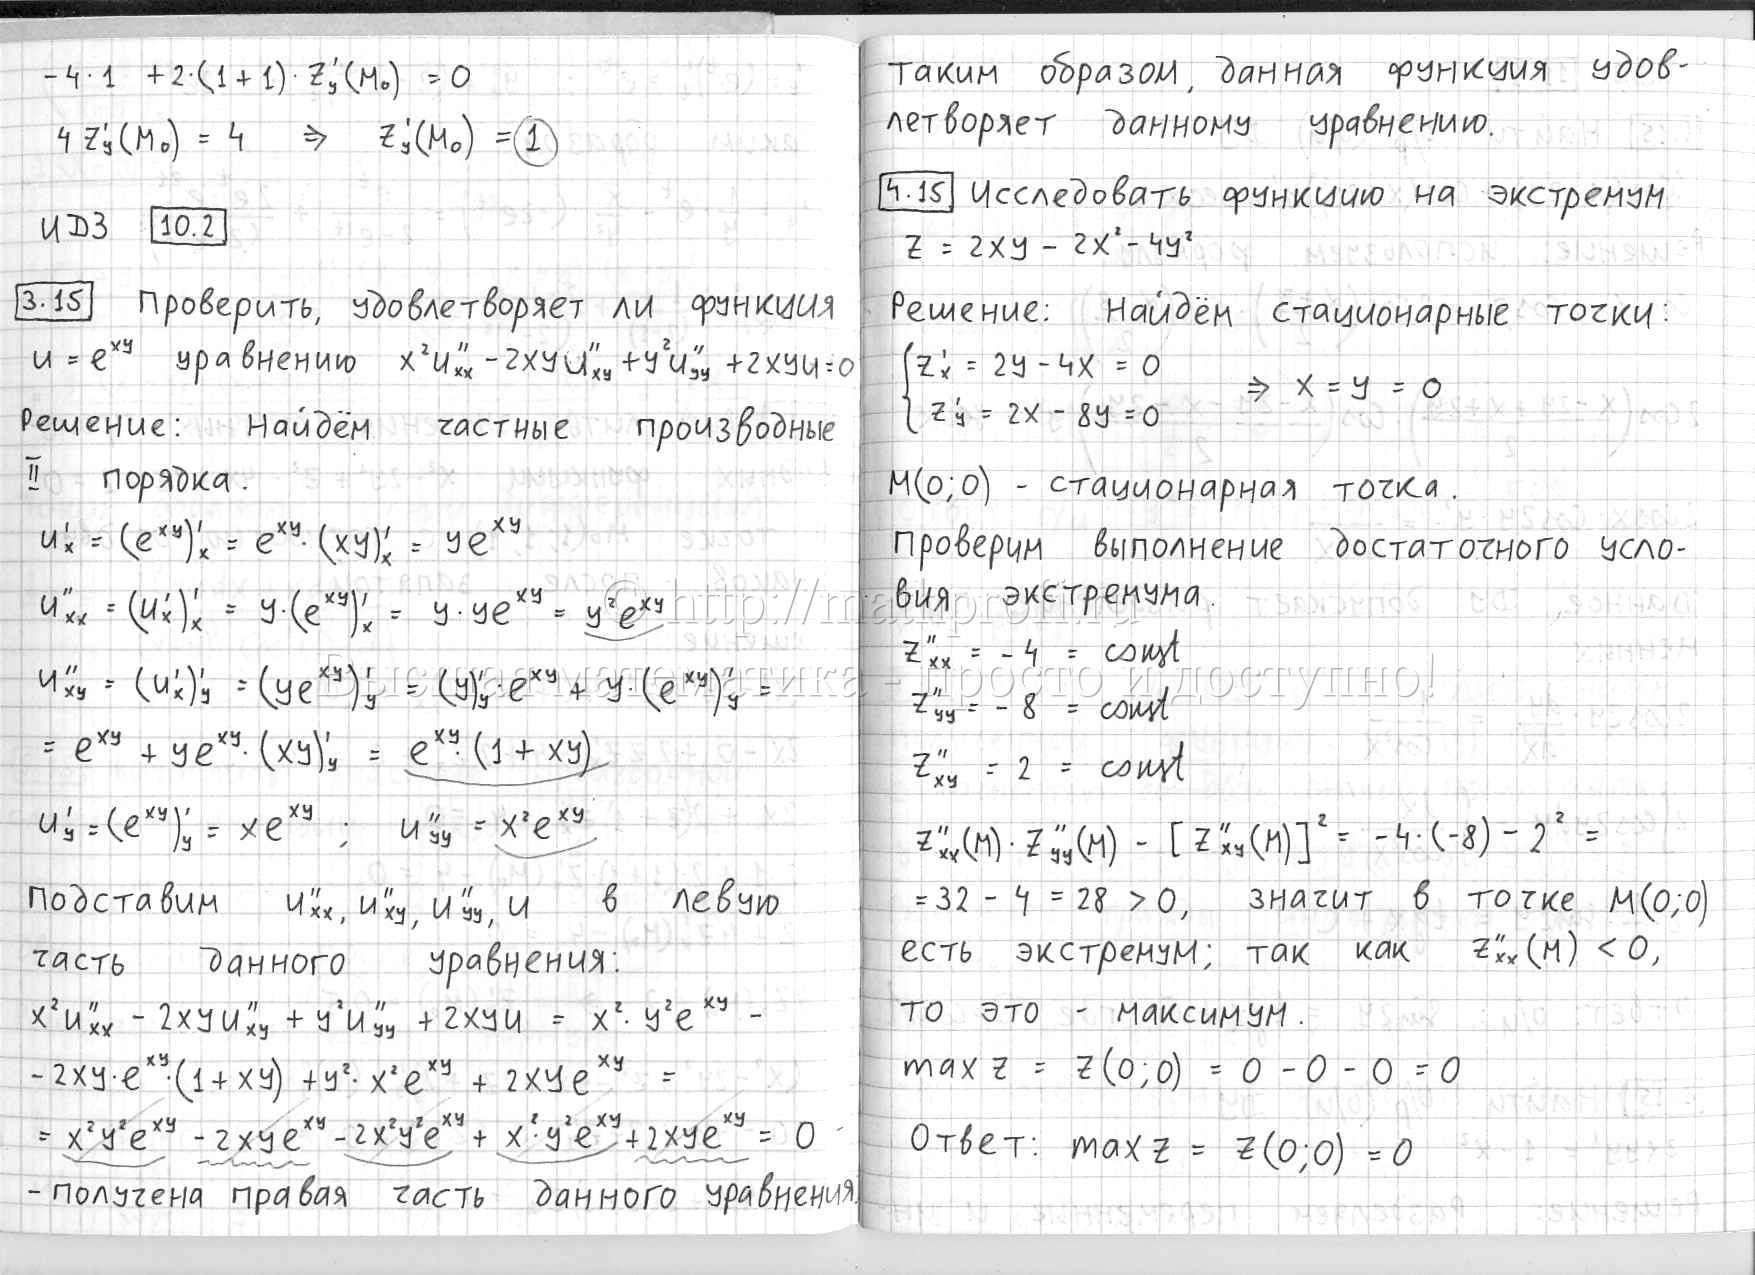 -4·1 + 2·(1+1)·z'_y(M₀) = 0
4z'_y(M₀) = 4 ⇒ z'_y(M₀) = 1
ИДЗ 10.2
3.15 Проверить, удовлетворяет ли функция
u = e^{xy} уравнению x²u''_{xx} - 2xyu''_{xy} + y²u''_{yy} + 2xyu = 0
Решение: Найдём частные производные
II порядка.
u'_x = (e^{xy})'_x = e^{xy}·(xy)'_x = ye^{xy}
u''_{xx} = (u'_x)'_x = y·(e^{xy})'_x = y·ye^{xy} = y²e^{xy}
u''_{xy} = (u'_x)'_y = (ye^{xy})'_y = (y)'_y·e^{xy} + y·(e^{xy})'_y =
= e^{xy} + ye^{xy}·(xy)'_y = e^{xy}·(1+xy)
u'_y = (e^{xy})'_y = xe^{xy}; u''_{yy} = x²e^{xy}
Подставим u''_{xx}, u''_{xy}, u''_{yy}, u в левую
часть данного уравнения:
x²u''_{xx} - 2xyu''_{xy} + y²u''_{yy} + 2xyu = x²·y²e^{xy} -
- 2xy·e^{xy}·(1+xy) + y²·x²e^{xy} + 2xye^{xy} =
= x²y²e^{xy} - 2xye^{xy} - 2x²y²e^{xy} + x²·y²e^{xy} + 2xye^{xy} = 0
- получена правая часть данного уравнения.
Таким образом, данная функция удов-
летворяет данному уравнению.
4.15 Исследовать функцию на экстремум
z = 2xy - 2x² - 4y²
Решение: Найдём стационарные точки:
{ z'_x = 2y - 4x = 0
z'_y = 2x - 8y = 0 ⇒ x = y = 0
M(0;0) - стационарная точка.
Проверим выполнение достаточного усло-
вия экстремума.
© http://mathprofi.ru
z''_{xx} = -4 = const
Высшая математика - просто и доступно!
z''_{yy} = -8 = const
z''_{xy} = 2 = const
z''_{xx}(M)·z''_{yy}(M) - [z''_{xy}(M)]² = -4·(-8) - 2² =
= 32 - 4 = 28 > 0, значит в точке M(0;0)
есть экстремум; так как z''_{xx}(M) < 0,
то это - максимум.
max z = z(0;0) = 0 - 0 - 0 = 0
Ответ: max z = z(0;0) = 0